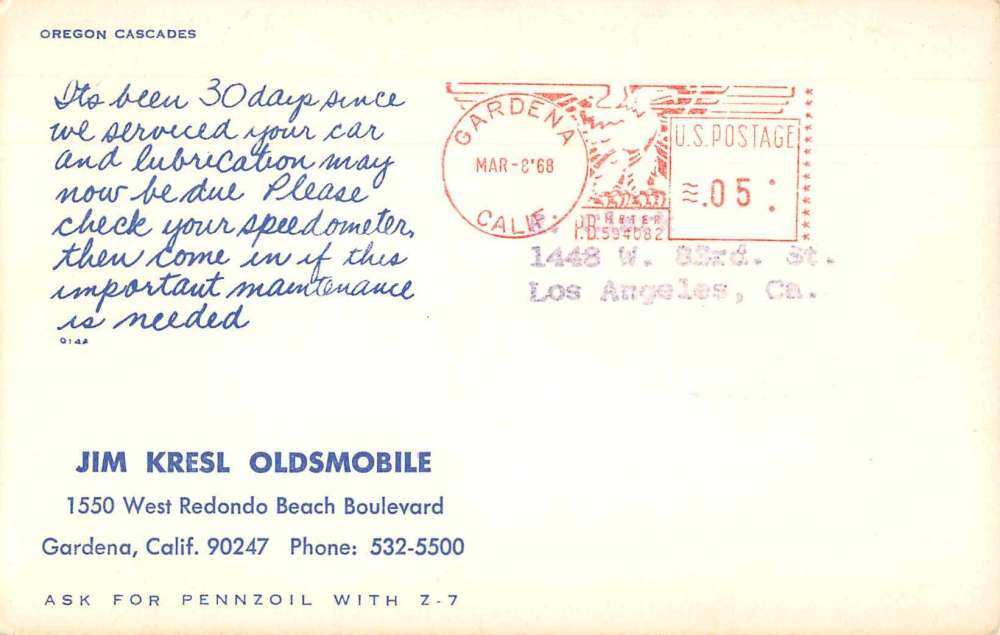 OREGON CASCADES
Its been 30 days since
we serviced your car
and lubrication may
now be due Please
check your speedometer,
then come in if this
important maintenance
is needed
Q144
GARDENA
MAR-8'68
CALIF.
U.S. POSTAGE
.05
METER
P.B. 594082
1448 W. 83rd. St.
Los Angeles, Ca.
JIM KRESL OLDSMOBILE
1550 West Redondo Beach Boulevard
Gardena, Calif. 90247 Phone: 532-5500
ASK FOR PENNZOIL WITH Z-7